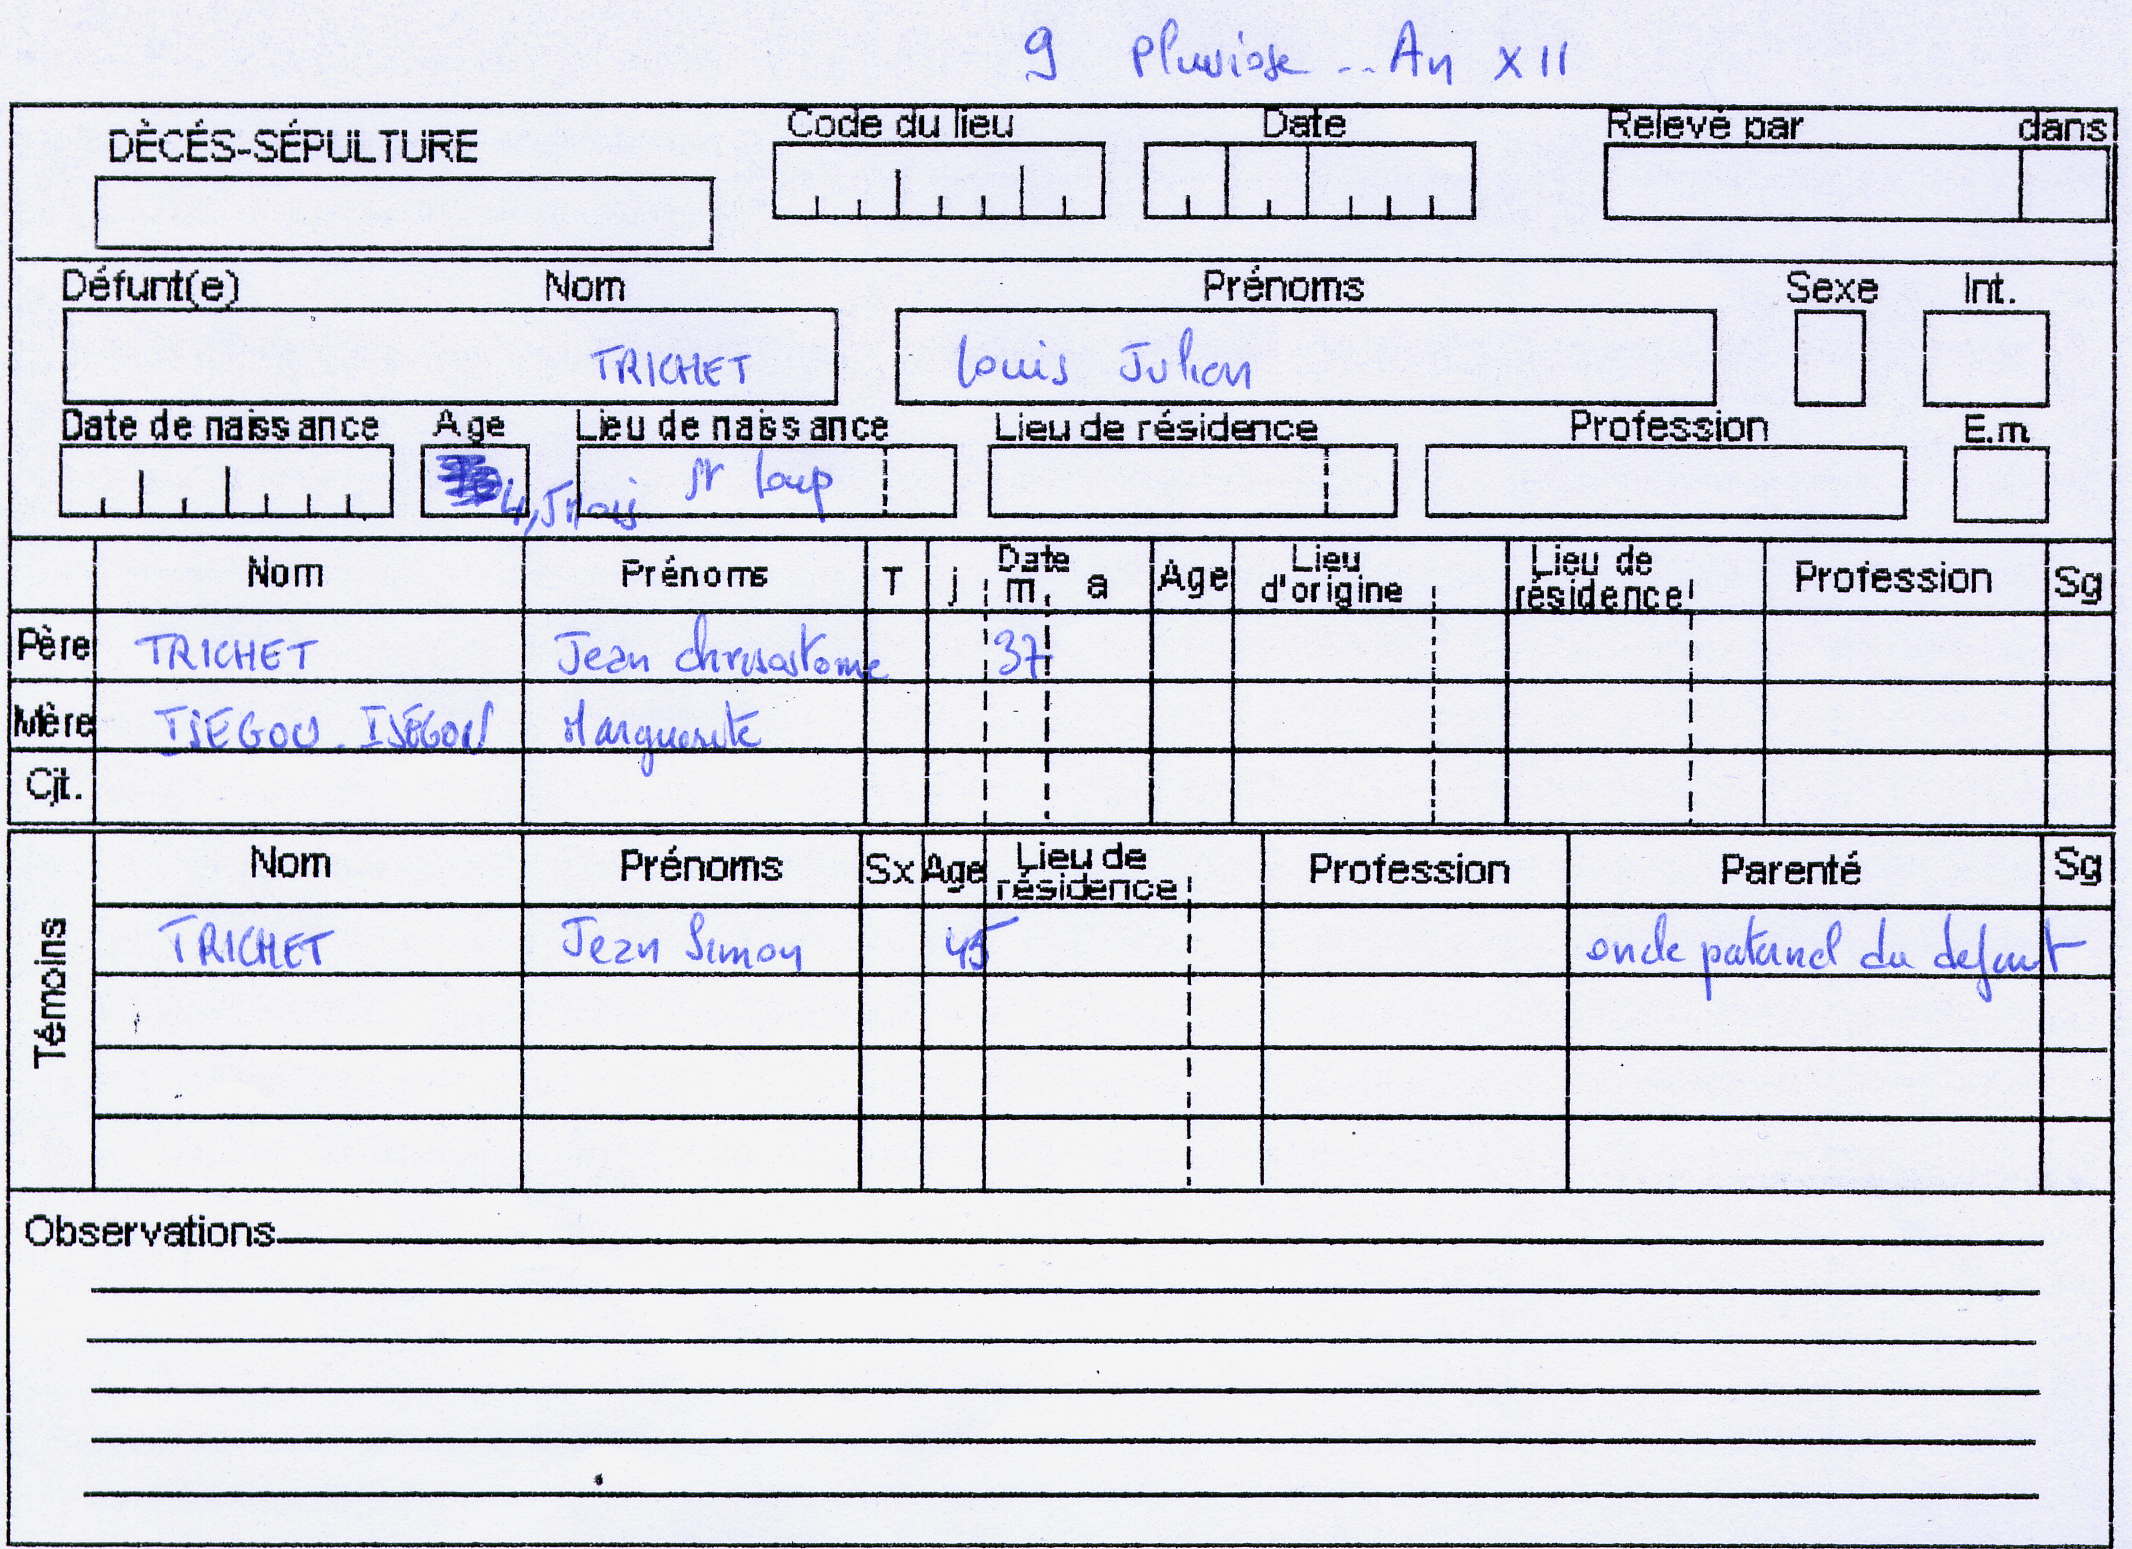 9 Pluviose -- An XII
DÈCÉS-SÉPULTURE Code du lieu Date Relevé par dans
Défunt(e) Nom Prénoms Sexe Int.
TRICHET Louis Julien
Date de naissance Age Lieu de naissance Lieu de résidence Profession E.m
4,5 mois St Loup
Nom Prénoms T j m, a Date Age Lieu d'origine Lieu de résidence Profession Sg
Père TRICHET Jean chrisostome 37
Mère ISEGOU. ISEGOU Marguerite
Cjt.
Témoins Nom Prénoms Sx Age Lieu de résidence Profession Parenté Sg
TRICHET Jean Simon 45 oncle paternel du defunt
Observations